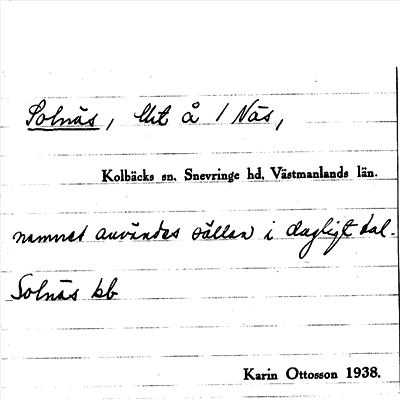 Solnäs, lht å 1 Näs,
Kolbäcks sn. Snevringe hd. Västmanlands län.
namnet användes sällan i dagligt tal.
Solnäs kb
Karin Ottosson 1938.